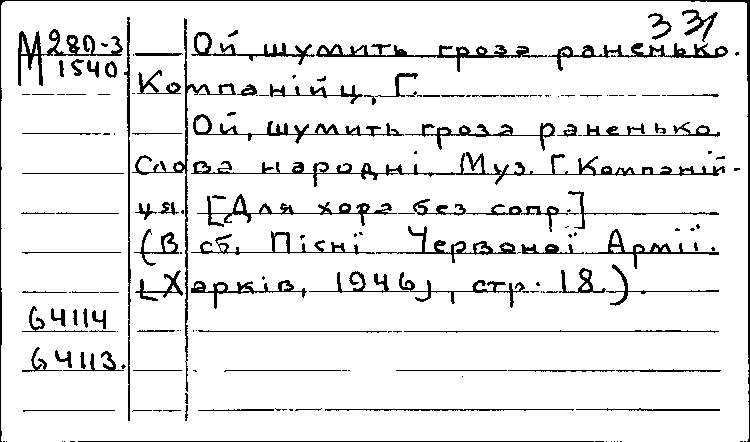 331
М 280-3
1540.
Ой, шумить гроза раненько.
Компанійц, Г.
Ой, шумить гроза раненько.
Слова народні. Муз. Г. Компаній-
ця. [Для хора без сопр.]
(В сб. Пісні Червоної Армії.
[Харків, 1946], стр. 18.).
64114
64113.